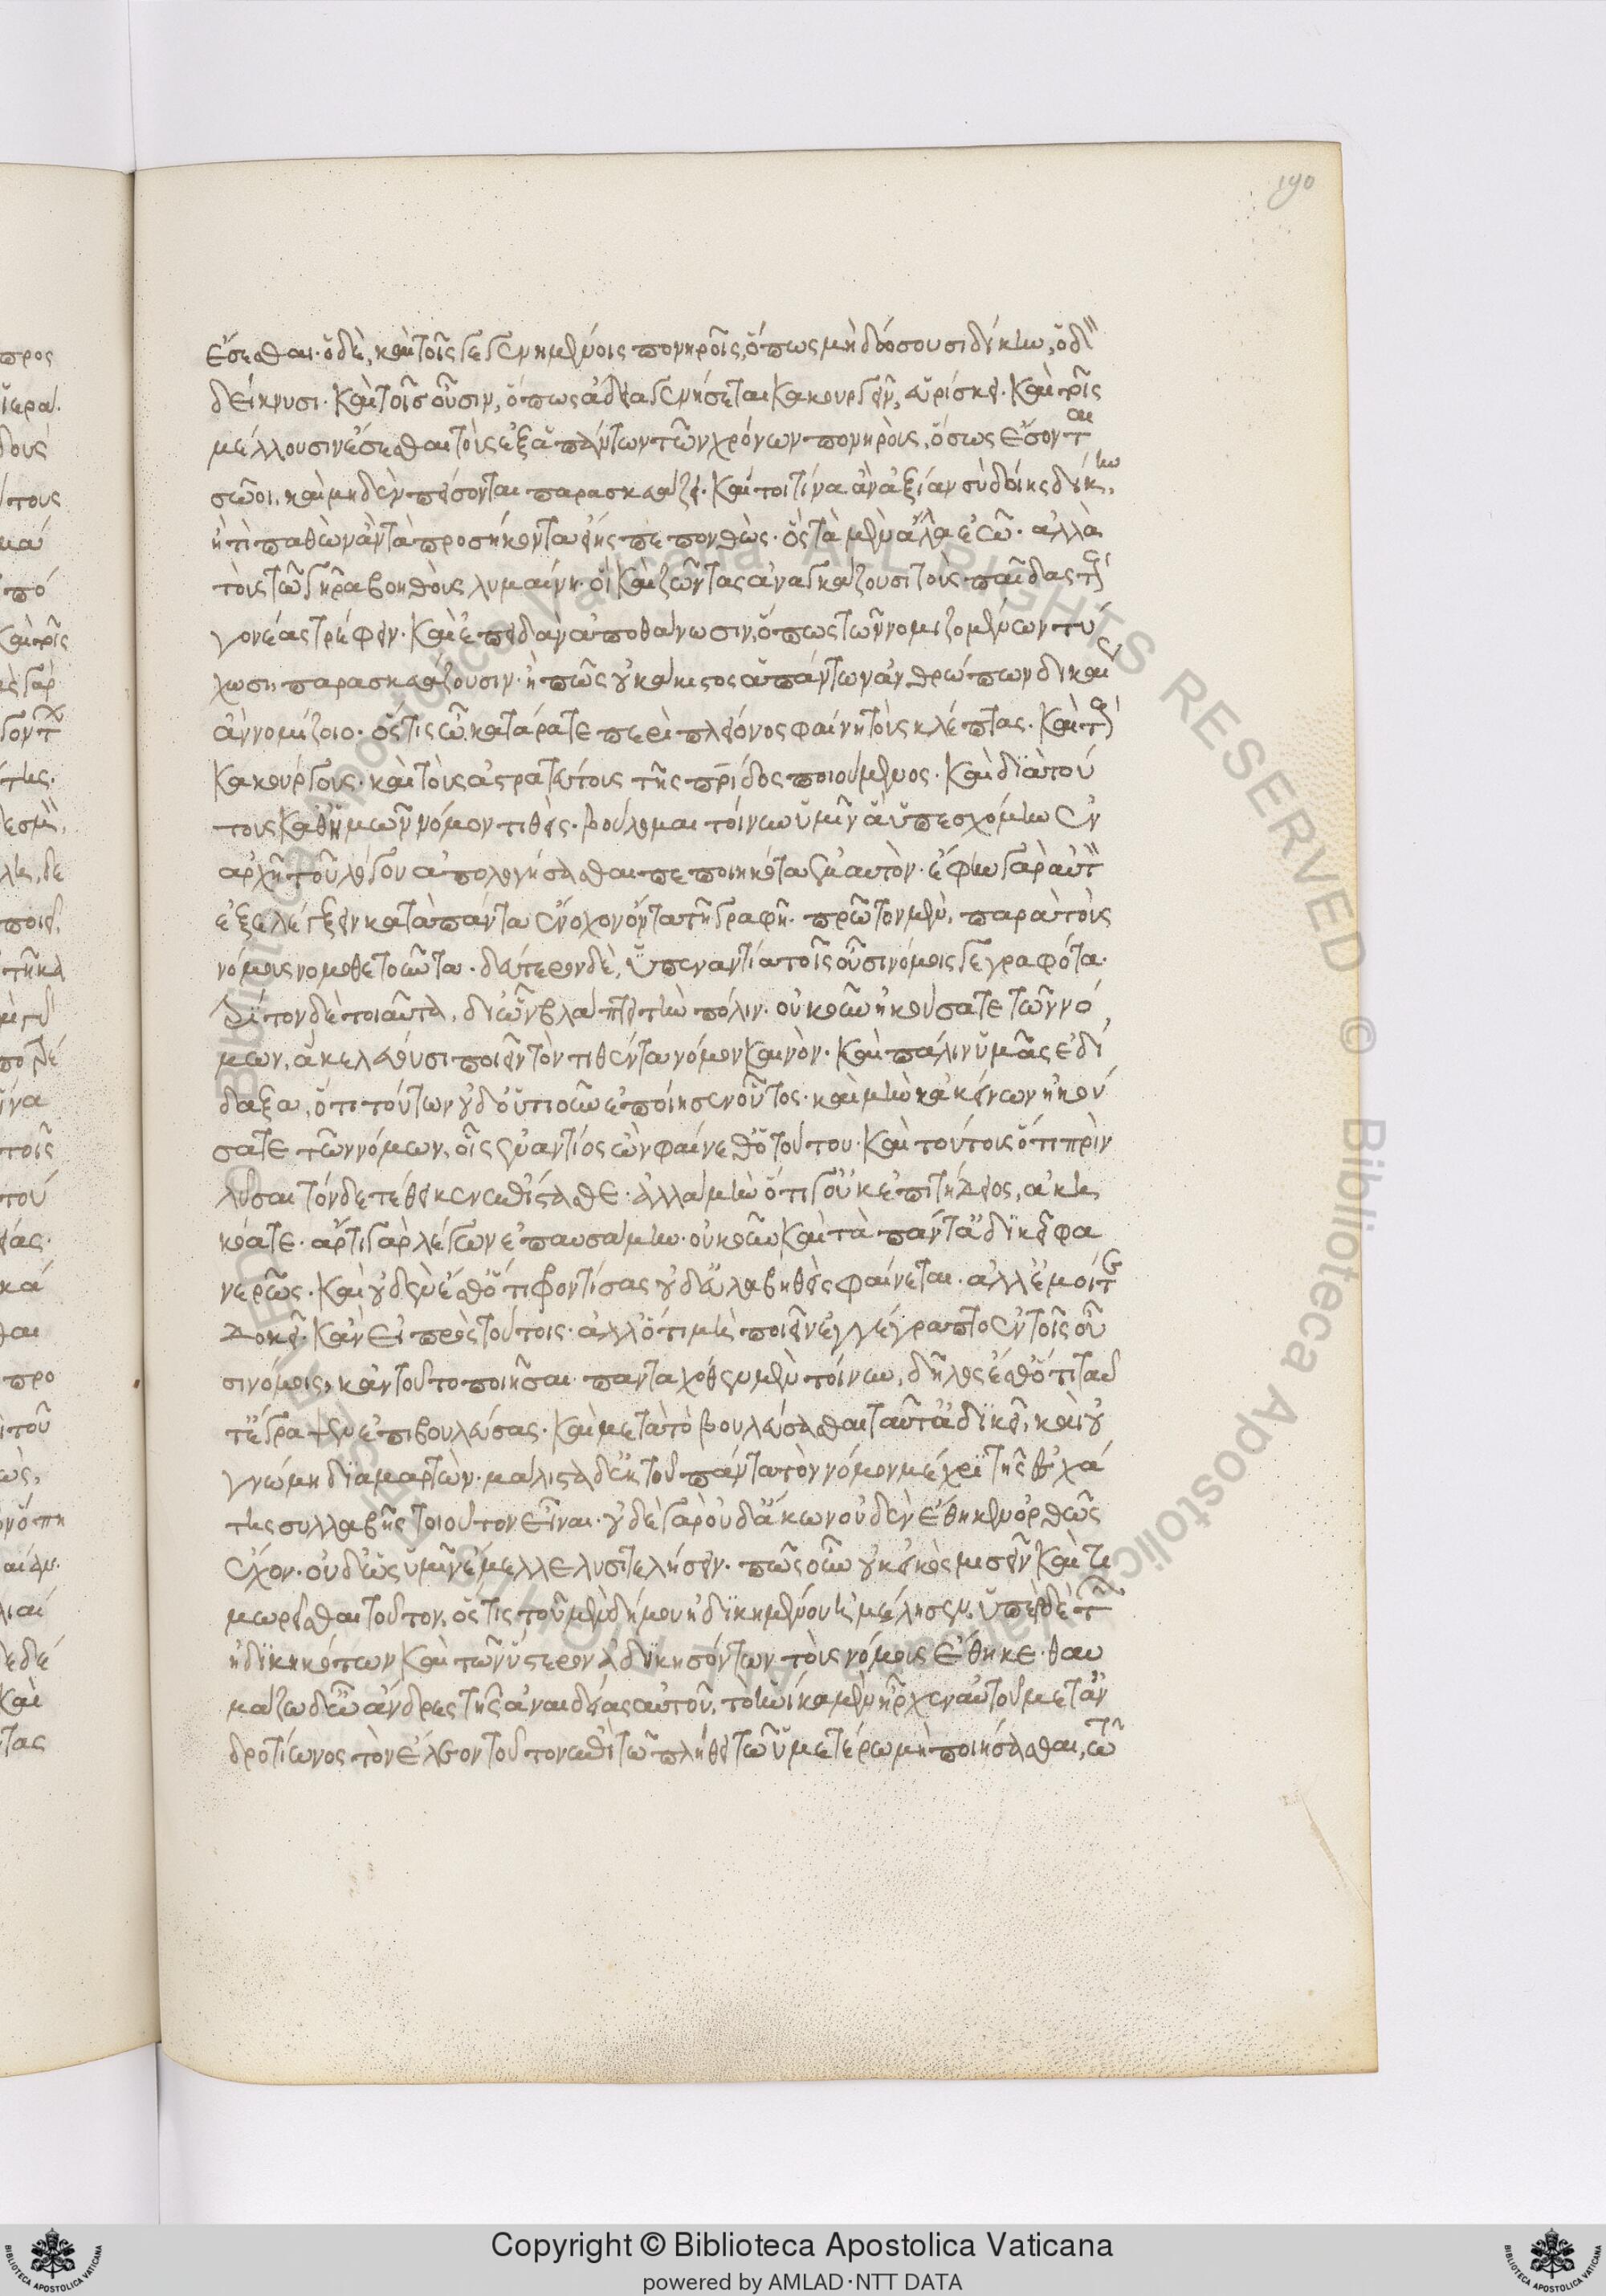 190
ἔσεσθαι· ὁ δὲ, καὶ τοῖς γεγενημένοις πονηροῖς, ὅπως μὴ δώσουσι δίκην, ὁδὸν
δείκνυσι· καὶ τοῖς οὖσιν, ὅπως ἄδεια γενήσεται κακουργεῖν, εὑρίσκει· καὶ τοῖς
μέλλουσιν ἔσεσθαι τοῖς ἐξ ἁπάντων τῶν χρόνων πονηροῖς, ὅπως ἔσονται
σῶοι, καὶ μηδὲν πείσονται παρασκευάζει· καί τοι τίνα ἂν ἀξίαν σὺ δοίης δίκην,
ἢ τί παθὼν ἂν τὰ προσήκοντα εἴης πεπονθώς· ὃς τὰ μὲν ἄλλα ἐῶ· ἀλλὰ
τοὺς τῶ γήρα βοηθοὺς λυμαίνη· οἳ καὶ ζῶντας ἀναγκάζουσι τοὺς παῖδας τοὺς
γονέας τρέφειν· καὶ ἐπειδὰν ἀποθάνωσιν, ὅπως τῶν νομιζομένων τύ
χωσι παρασκευάζουσιν· ἢ πῶς οὐ κάκιστος ἁπάντων ἀνθρώπων δικαίως
ἂν νομίζοιο· ὅστις ὦ κατάρατε περὶ πλείονος φαίνη τοὺς κλέπτας· καὶ τοὺς
κακούργους· καὶ τοὺς ἀστρατεύτους τῆς πρίδος ποιούμενος· καὶ διὰ τού
τους καθ' ἡμῶν νόμον τιθείς· βούλομαι τοίνυν ὑμῖν ἃ ὑπεσχόμην ἐν
ἀρχῆ τοῦ λόγου ἀπολογήσασθαι πεποιηκότα ἐμαυτὸν· ἔφην γὰρ αὐτὸν
ἐξελέγξειν κατὰ πάντα ἔνοχον ὄντα τῆ γραφῆ· πρῶτον μὲν, παρὰ τοὺς
νόμους νομοθετοῦντα· δεύτερον δὲ, ὑπεναντία τοῖς οὖσι νόμοις γεγραφότα·
τρίτον δὲ τοιαῦτα, δι' ὧν βλάπτει τὴν πόλιν· οὐκοῦν ἠκούσατε τῶν νό
μων, ἃ κελεύουσι ποιεῖν τὸν τιθέντα νόμον καινὸν· καὶ πάλιν ὑμᾶς ἐδί
δαξα, ὅτι τούτων οὐδ' ὁτιοῦν ἐποίησεν οὗτος· καὶ μὴν κἀκείνων ἠκού
σατε τῶν νόμων, οἷς ἐναντίος ὢν φαίνεθ' ὁ τούτου· καὶ τούτοις ὅτι πρὶν
λῦσαι τόνδε τέθεικεν ἐπίστασθε· ἀλλὰ μὴν ὅτι γ' οὐκ ἐπιτήδειος, ἀκη
κόατε· ἄρτι γὰρ λέγων ἐπαυσάμην· οὐκοῦν καὶ τὰ πάντ' ἀδικεῖ φα
νερῶς· καὶ οὐδὲν ἔσθ' ὅτι φροντίσας οὐδ' εὐλαβηθεὶς φαίνεται· ἀλλ' ἐμοί γε
δοκεῖ· κἀν εἰ πρὸς τούτοις· ἄλλ' ὅτι μὴ ποιεῖν ἐγγέγραπτο ἐν τοῖς οὖ
σι νόμοις, κἂν τοῦτο ποιῆσαι· πανταχόθεν μὲν τοίνυν, δῆλός ἐσθ' ὅτι ταῦ
τ' ἔγραψεν ἐπιβουλεύσας· καὶ μετὰ τὸ βουλεύσασθαι ταῦτ' ἀδικεῖ, καὶ οὐ
γνώμη διαμαρτών· μάλιστα δὲ ἐκ τοῦ πάντα τὸν νόμον μέχρι τῆς ἐσχά
της συλλαβῆς τοιοῦτον εἶναι· οὐδὲ γὰρ οὐδ' ἄκων οὐδὲν ἔθηκεν ὀρθῶς
ἔχον· οὐδ' ὡς ὑμῖν ἔμελλε λυσιτελήσειν· πῶς οὖν οὐκ εἰκὸς μισεῖν καὶ τι
μωρεῖσθαι τοῦτον, ὅστις τοῦ μὲν δήμου ἠδικημένου ἠμέλησεν, ὑπὲρ δὲ τῶν
ἠδικηκότων καὶ τῶν ὕστερον ἀδικησόντων τοὺς νόμους ἔθηκε· θαυ
μάζω δ' ὦ ἄνδρες τῆς ἀναιδείας αὐτοῦ, τὸ ἡνίκα μὲν ἦρχεν αὐτοῦ μετ' ἀν
δροτίωνος τὸν ἔλεον τοῦτον ἐπὶ τῶ πλήθει τῶ ὑμετέρω μὴ ποιήσασθαι, τῶ
Copyright © Biblioteca Apostolica Vaticana
powered by AMLAD·NTT DATA